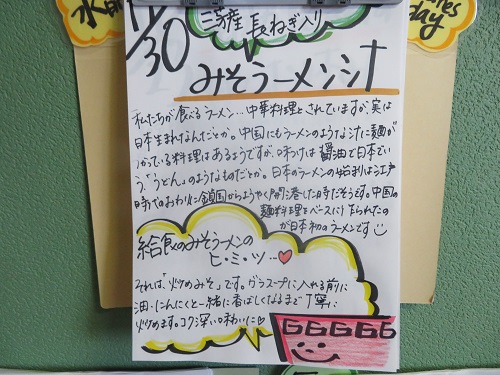 水曜
nes
day
11/30
三芳産 長ねぎ入り
みそラーメンシナ
私たちが食べるラーメン…中華料理とされていますが、実は
日本生まれなんだとか。中国にもラーメンのような汁に麺が
つかっている料理はあるようですが、味つけは醤油で日本でい
う、「うどん」のようなものだとか。日本のラーメンの始まりは江戸
時代のおわりに鎖国からようやく開港した時だそうです。中国の
麺料理をベースに作られたのが
日本初のラーメンです
給食のみそラーメンの
ヒ・ミ・ツ…
それは、「炒めみそ」です。ガラスープに入れる前に
油・にんにくと一緒に香ばしくなるまで丁寧に
炒めます。コク深い味わいに